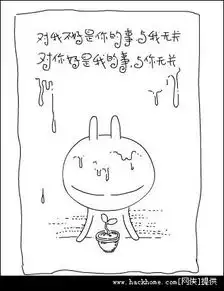 对我不好是你的事,与我无关
对你好是我的事,与你无关
www.hackhome.com[网侠]提供